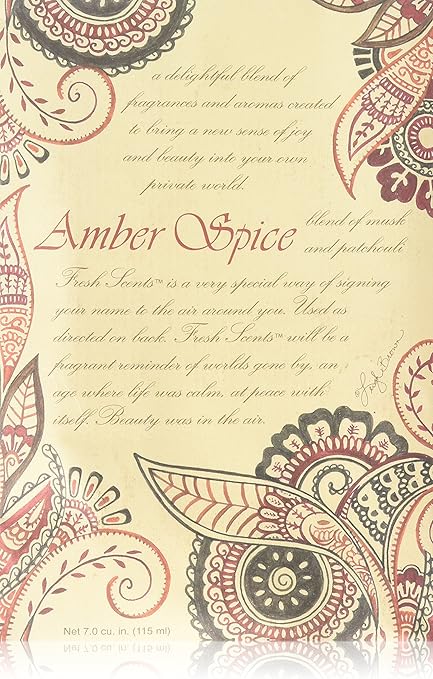 a delightful blend of
fragrances and aromas created
to bring a new sense of joy
and beauty into your own
private world.
Amber Spice
blend of musk
and patchouli
Fresh Scents™ is a very special way of signing
your name to the air around you. Used as
directed on back, Fresh Scents™ will be a
fragrant reminder of worlds gone by, an
age where life was calm, at peace with
itself. Beauty was in the air.
Net 7.0 cu. in. (115 ml)